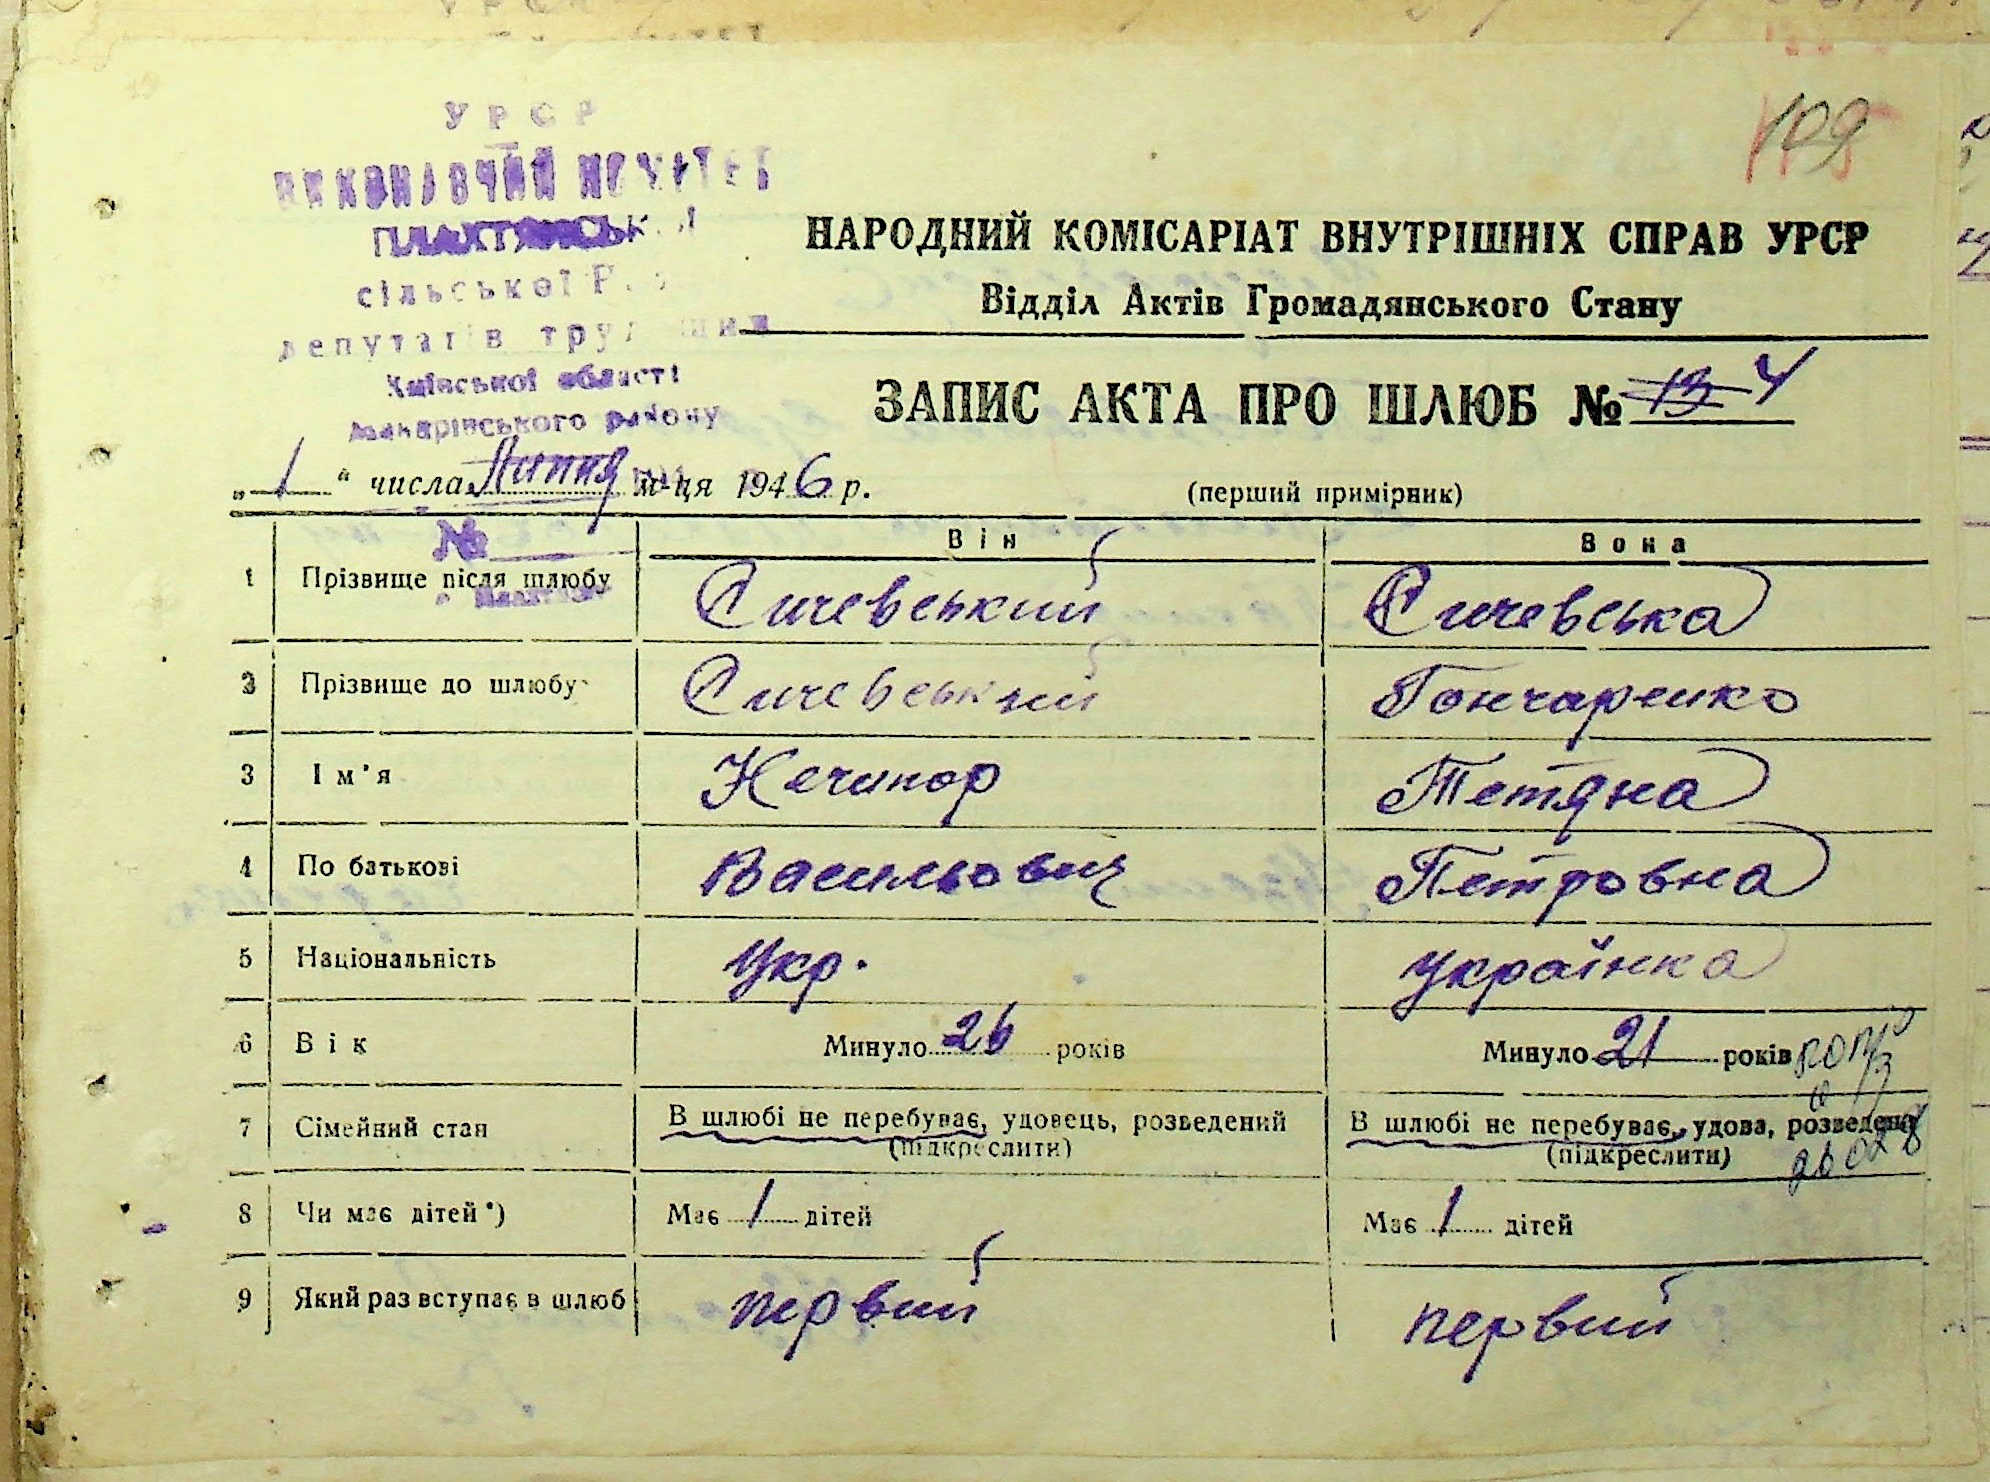 109
УРСР
ВИКОНАВЧИЙ КОМІТЕТ
ПЛАХТЯНСЬКОЇ
сільської Ради
депутатів трудящих
Київської області
Макарівського району
№
НАРОДНИЙ КОМІСАРІАТ ВНУТРІШНІХ СПРАВ УРСР
Відділ Актів Громадянського Стану
ЗАПИС АКТА ПРО ШЛЮБ № 13 4
„ 1 “ числа Липня м-ця 1946 р.
(перший примірник)
Він Вона
1 Прізвище після шлюбу Сичевський Сичевська
2 Прізвище до шлюбу Сичевський Гончаренко
3 Ім'я Нечипор Тетяна
4 По батькові Васильович Петровна
5 Національність Укр. українка
6 Вік Минуло 26 років Минуло 21 років
7 Сімейний стан В шлюбі не перебуває, удовець, розведений В шлюбі не перебуває, удова, розведена
(підкреслити) (підкреслити)
8 Чи має дітей*) Має 1 дітей Має 1 дітей
9 Який раз вступає в шлюб первий первий